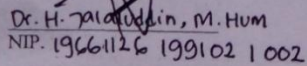 Dr. H. Jalaluddin, M. HUM
NIP. 19661126 199102 1 002